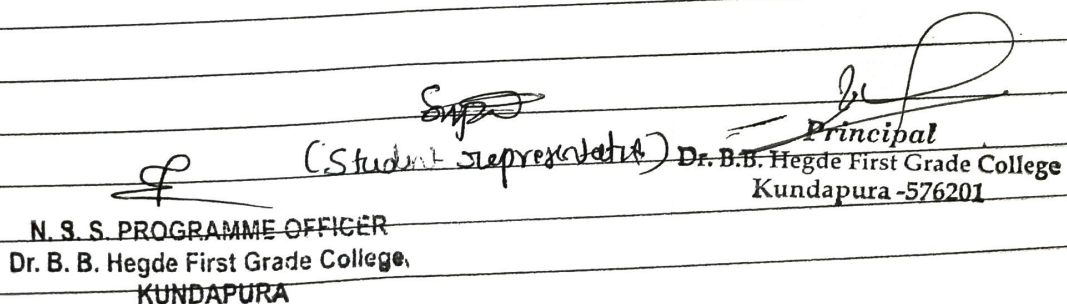 (Student representative)
Principal
Dr. B.B. Hegde First Grade College
Kundapura -576201
N. S. S. PROGRAMME OFFICER
Dr. B. B. Hegde First Grade College,
KUNDAPURA